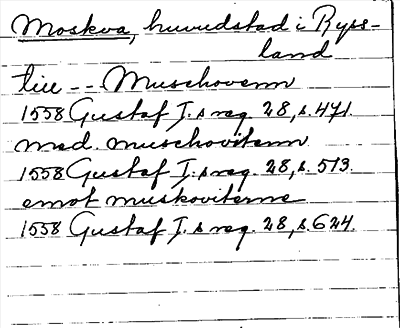 Moskva, huvudstad i Ryss-
land
till -- Muschovenn
1558 Gustaf I.s reg. 28, s. 471.
med. muschovitenn
1558 Gustaf I.s reg. 28, s. 513.
emot muskoviterne
1558 Gustaf I.s reg. 28, s. 624.